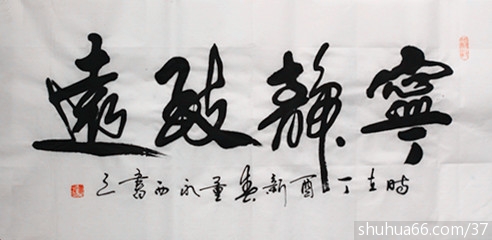 寧靜致遠
時在丁酉新春董永西書之
shuhua66.com/37